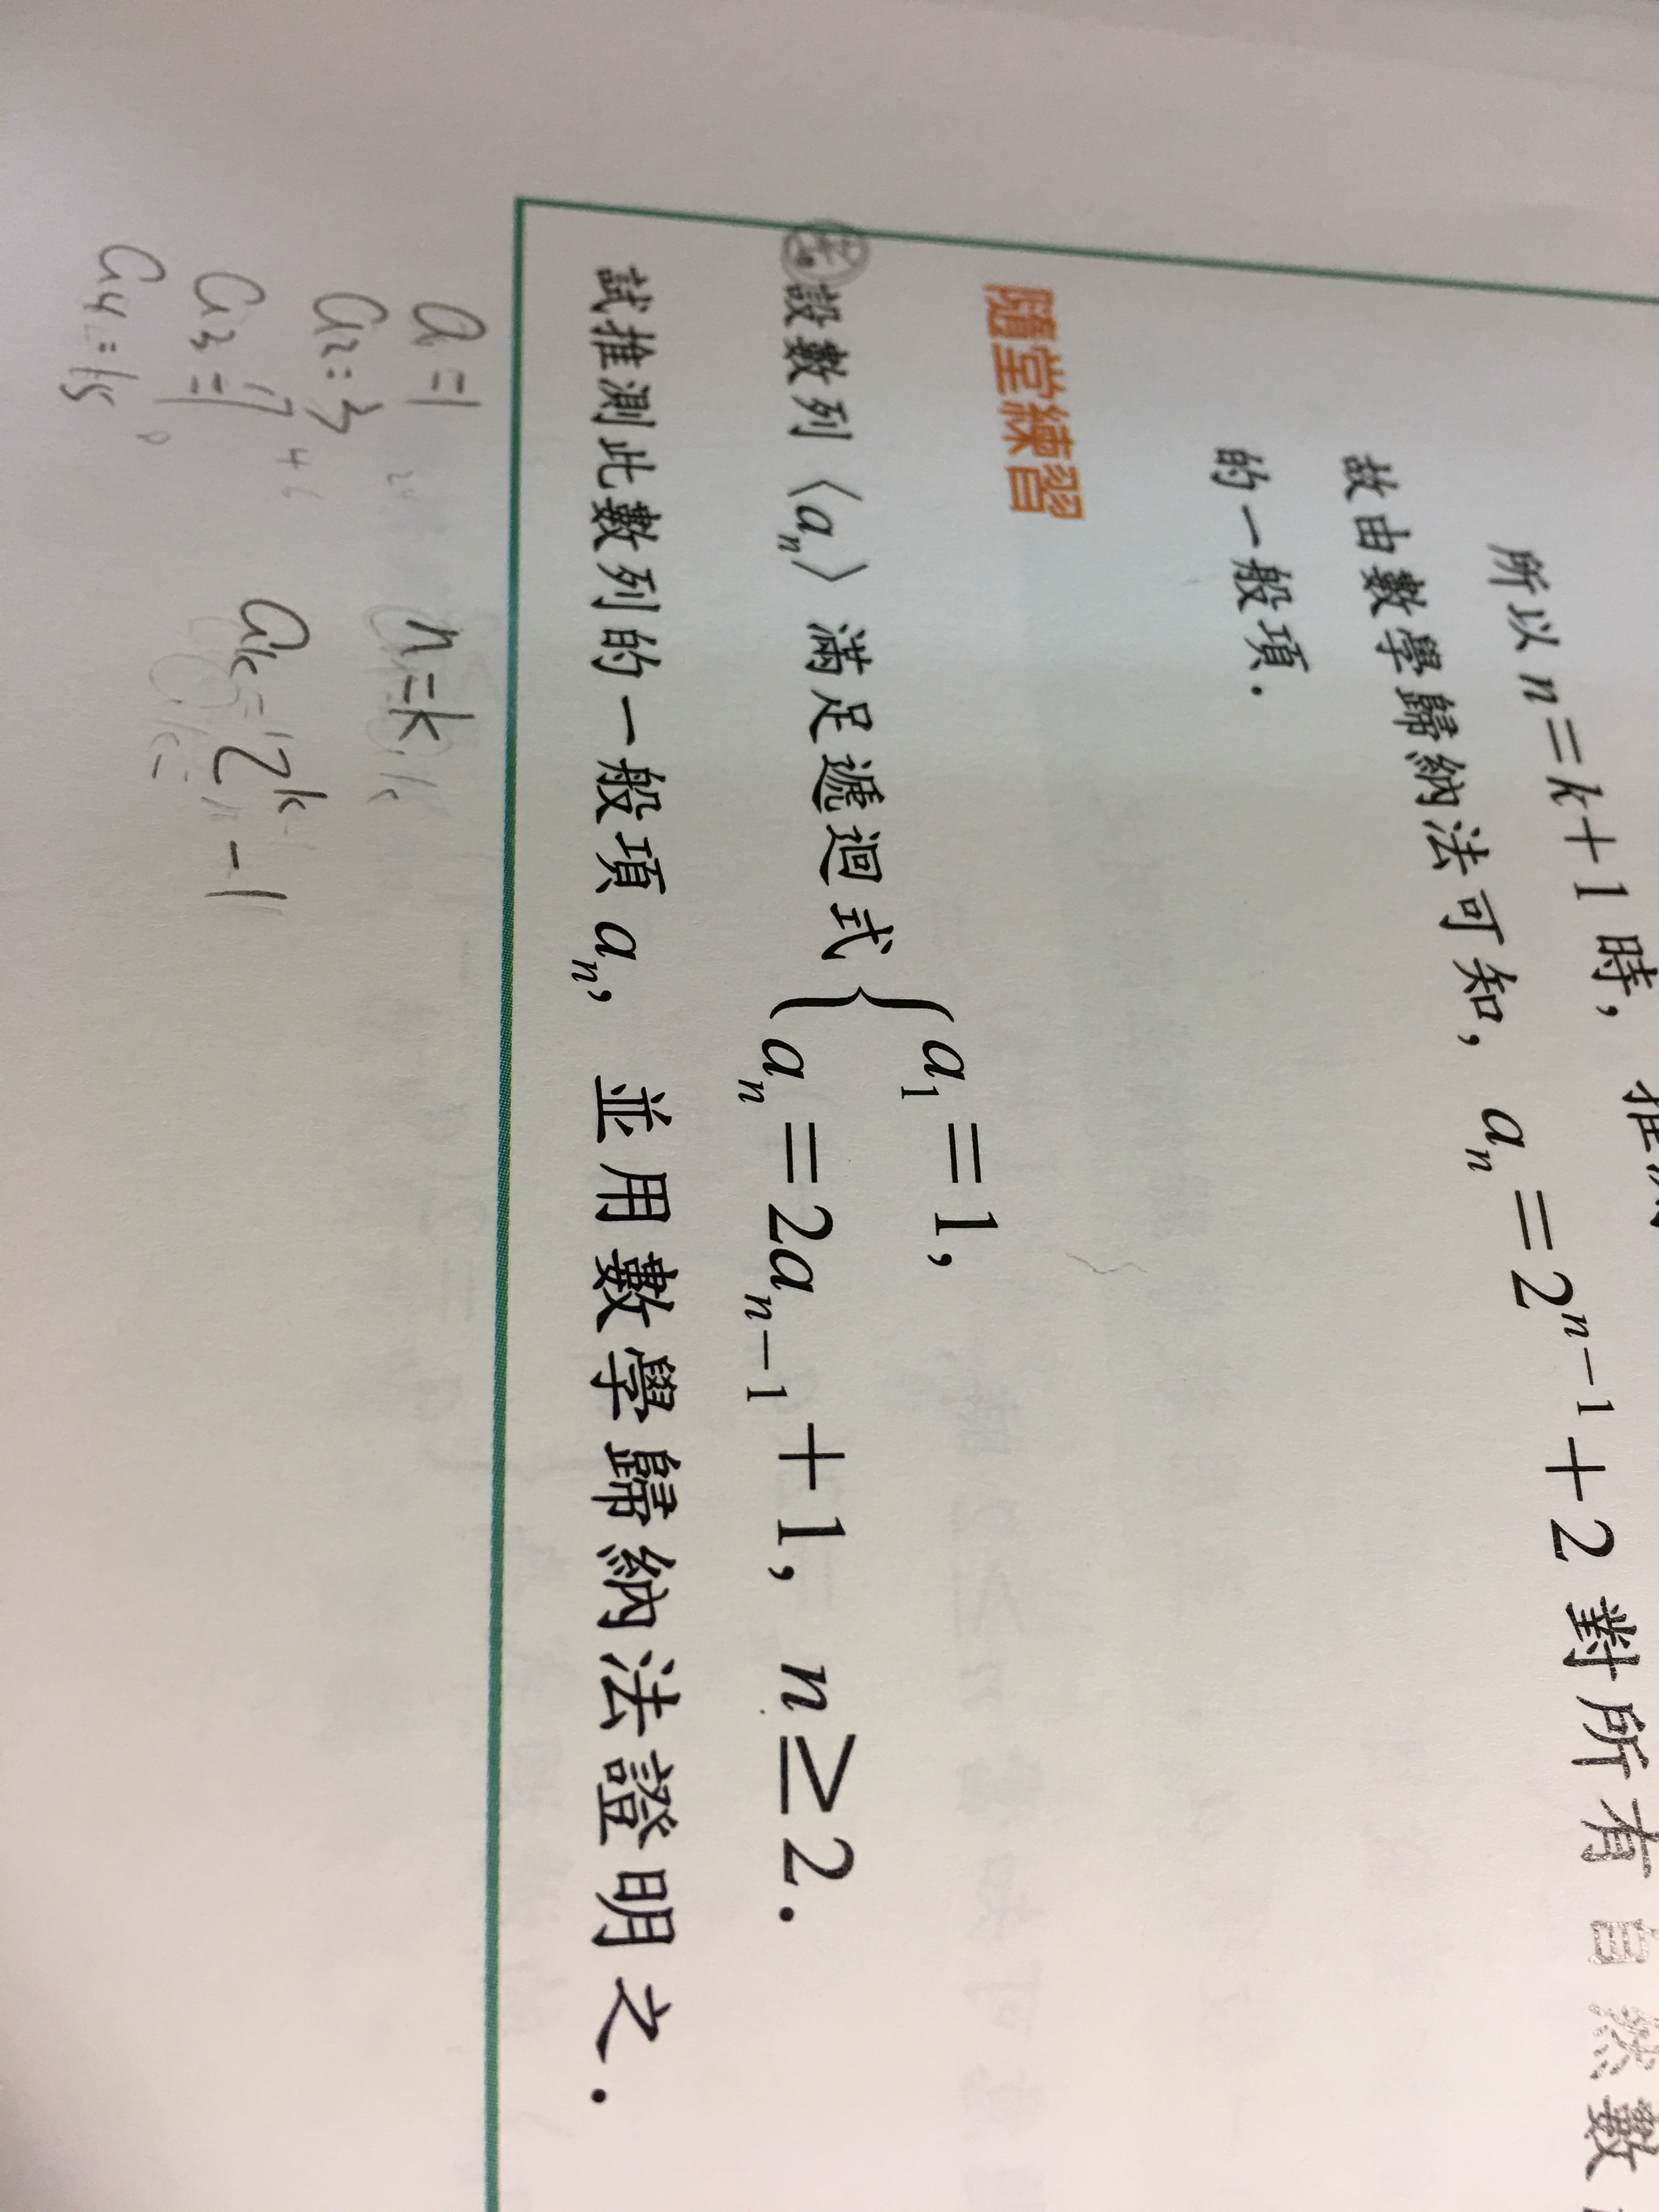 所以 n=k+1 時，推測
故由數學歸納法可知，aₙ=2ⁿ⁻¹+2 對所有自然數
的一般項．
隨堂練習
設數列〈aₙ〉滿足遞迴式{a₁=1，
aₙ=2aₙ₋₁+1，n≥2．
試推測此數列的一般項 aₙ，並用數學歸納法證明之．
a=1
a₂=3
a₃=7
a₄=15
n=k
aₖ=2ᵏ-1